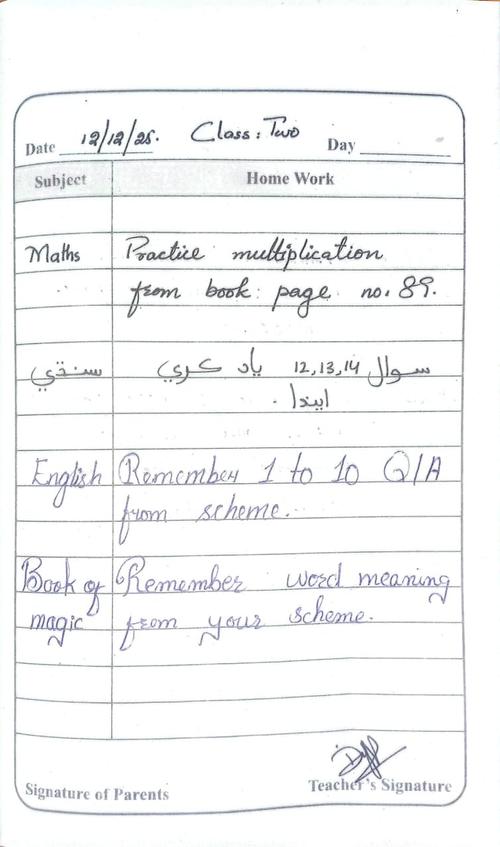 Date 12/12/25. Class: Two Day
Subject Home Work
Maths Practice multiplication
from book: page no. 89.
سنڌي سوال 12,13,14 ياد ڪري
ايندا.
English Remember 1 to 10 Q/A
from scheme.
Book of Remember word meaning
magic from your scheme.
Signature of Parents Teacher's Signature